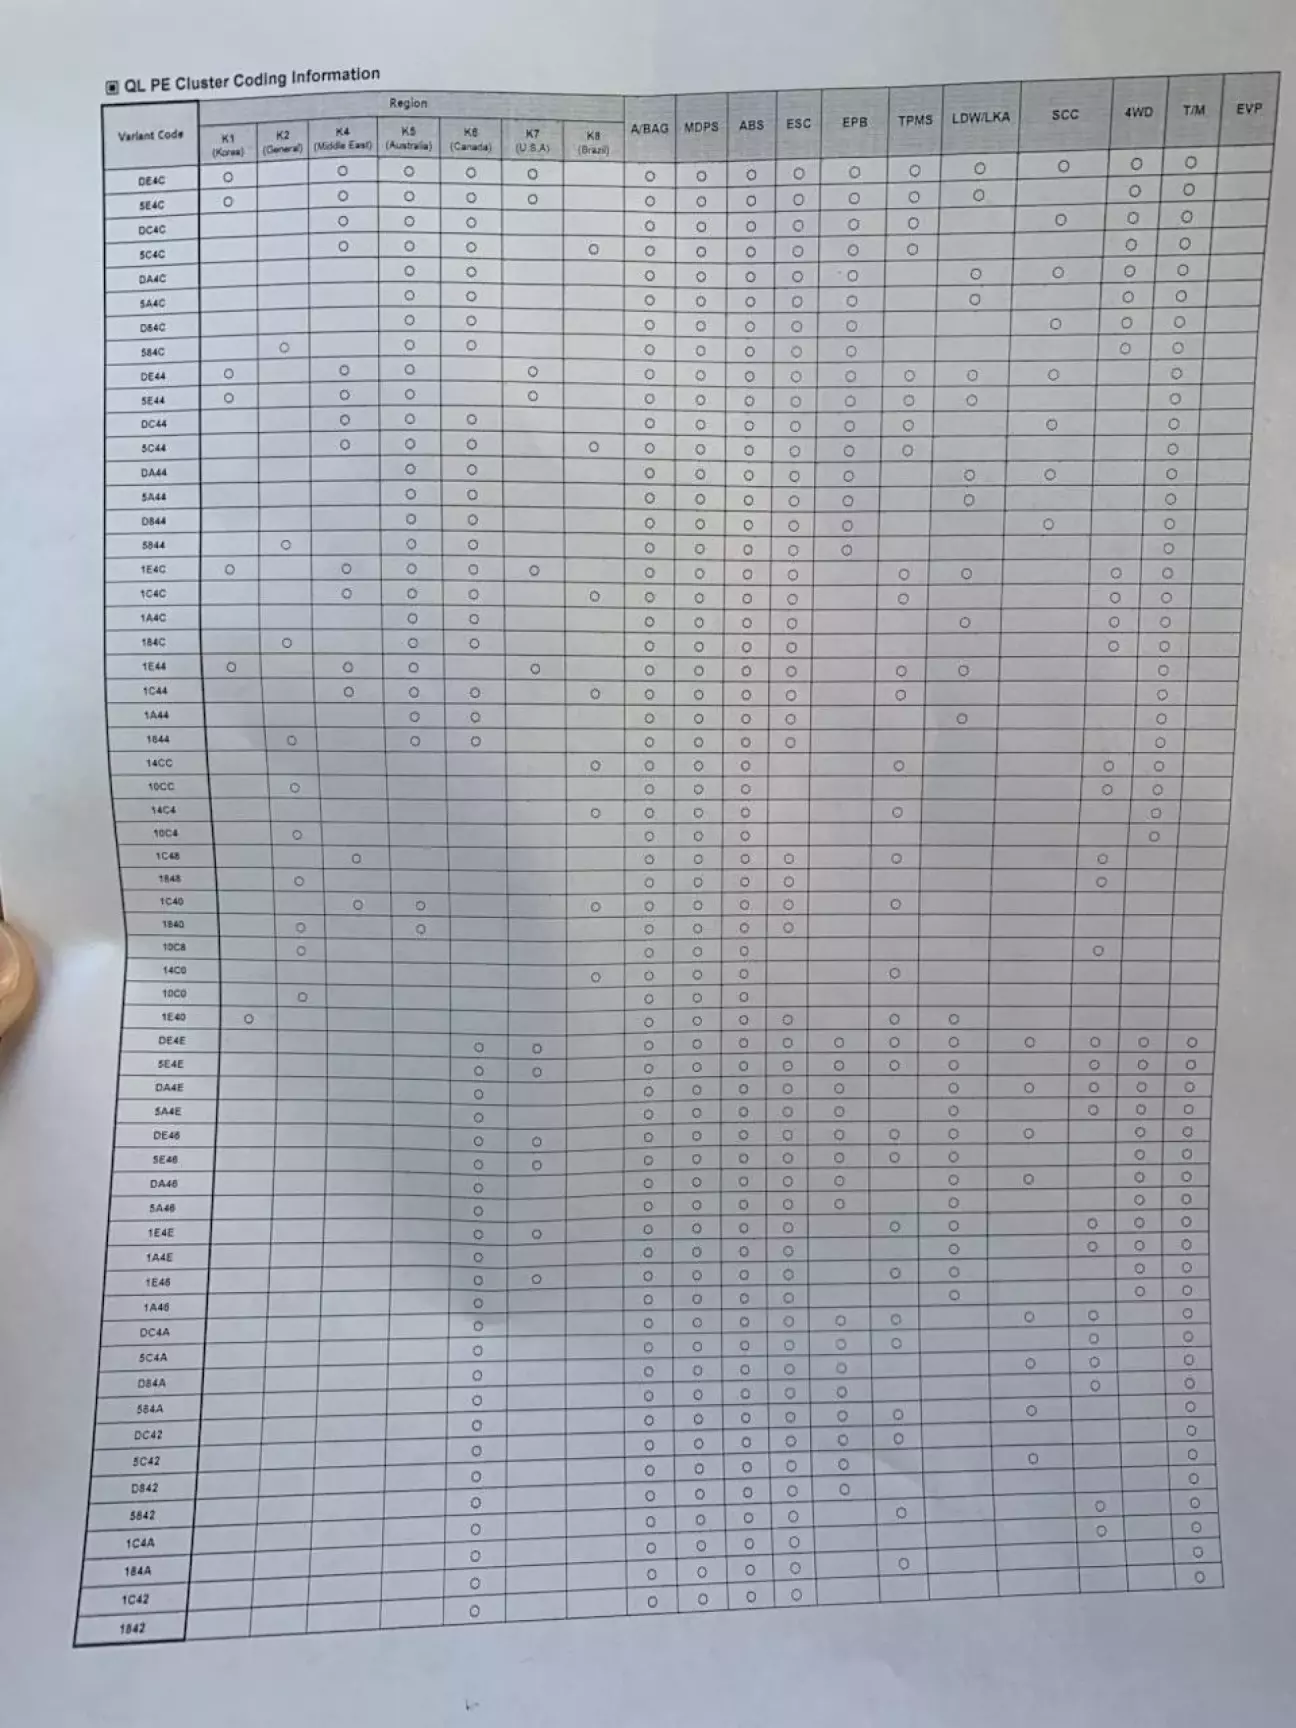 ▣ QL PE Cluster Coding Information
Variant Code
Region
K1 (Korea)
K2 (General)
K4 (Middle East)
K5 (Australia)
K6 (Canada)
K7 (U.S.A)
K8 (Brazil)
A/BAG
MDPS
ABS
ESC
EPB
TPMS
LDW/LKA
SCC
4WD
T/M
EVP
DE4C
5E4C
DC4C
5C4C
DA4C
5A4C
D84C
584C
DE44
5E44
DC44
5C44
DA44
5A44
D844
5844
1E4C
1C4C
1A4C
184C
1E44
1C44
1A44
1844
14CC
10CC
14C4
10C4
1C48
1848
1C40
1840
10C8
14C0
10C0
1E40
DE4E
5E4E
DA4E
5A4E
DE46
5E46
DA46
5A46
1E4E
1A4E
1E46
1A46
DC4A
5C4A
D84A
584A
DC42
5C42
D842
5842
1C4A
184A
1C42
1842